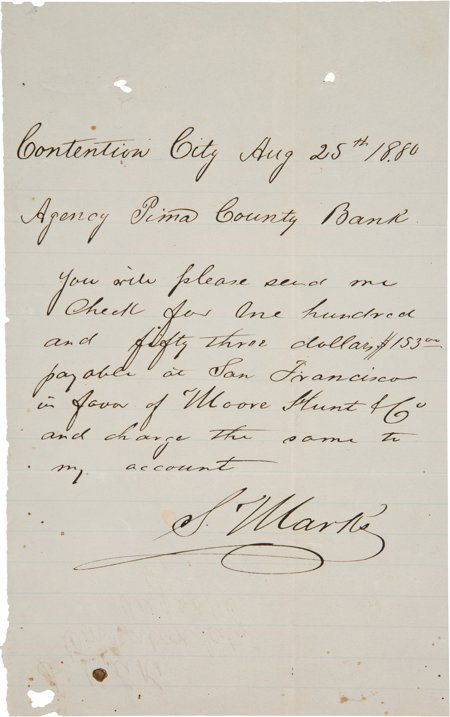 Contention City Aug 25th 1880
Agency Pima County Bank.
You will please send me
Check for One hundred
and fifty three dollars $153 00
payable at San Francisco
in favor of Moore Hunt & Co
and charge the same to
my account
S. Marks